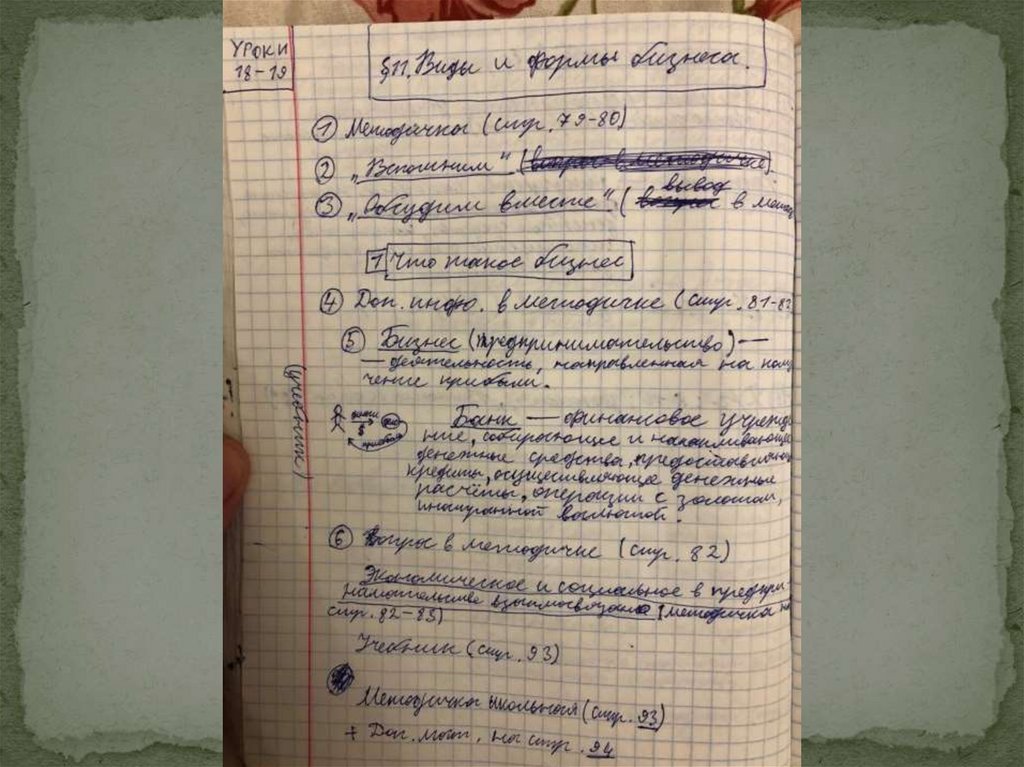 УРОКИ
18-19
§11. Виды и формы бизнеса.
① Методичка (стр. 79-80)
② „Вспомним“
③ „Обсудим вместе“ (вывод в мето
1 Что такое бизнес
④ Доп. инфо. в методичке (стр. 81-82
⑤ Бизнес (предпринимательство) —
— деятельность, направленная на полу
чение прибыли.
(учебник)
$
прибыль
Банк — финансовое учрежде
ние, собирающее и накапливающее
денежные средства, предоставляющее
кредиты, осуществляющее денежные
расчёты, операции с золотом,
иностранной валютой.
⑥ Вопрос в методичке (стр. 82)
Экономическое и социальное в предпри-
нимательстве взаимосвязано (методичка на
стр. 82-83)
Учебник (стр. 93)
Методичка школьная (стр. 93)
+ Доп. мат. на стр. 94